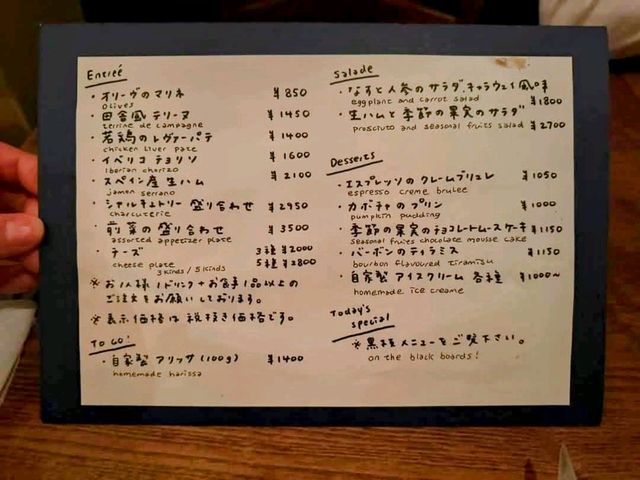 Entreé
・オリーヴのマリネ ¥850
olives
・田舎風テリーヌ ¥1450
terrine de campagne
・若鶏のレヴァーパテ ¥1400
chicken liver pate
・イベリコチョリソ ¥1600
iberian chorizo
・スペイン産生ハム ¥2100
jamon serrano
・シャルキュトリー盛り合わせ ¥2950
charcuterie
・前菜の盛り合わせ ¥3500
assorted appetizer plate
・チーズ 3種 ¥2000
cheese plate 5種 ¥2800
3kinds/5kinds
※お1人様1ドリンク+お食事1品以上の
ご注文をお願いしております。
※表示価格は税抜き価格です。
TO GO!
・自家製アリッサ(100g) ¥1400
homemade harissa
Salade
・なすと人参のサラダ.キャラウェイ風味
eggplant and carrot salad ¥1800
・生ハムと季節の果実のサラダ
prosciuto and seasonal fruits salad ¥2700
Desserts
・エスプレッソのクレームブリュレ ¥1050
espresso creme brulee
・カボチャのプリン ¥1000
pumpkin pudding
・季節の果実のチョコレートムースケーキ ¥1150
seasonal fruits chocolate mousse cake
・バーボンのティラミス ¥1150
bourbon flavoured tiramisu
・自家製アイスクリーム各種 ¥1000~
homemade ice creame
Today's
special
※黒板メニューをご覧下さい。
on the black boards!